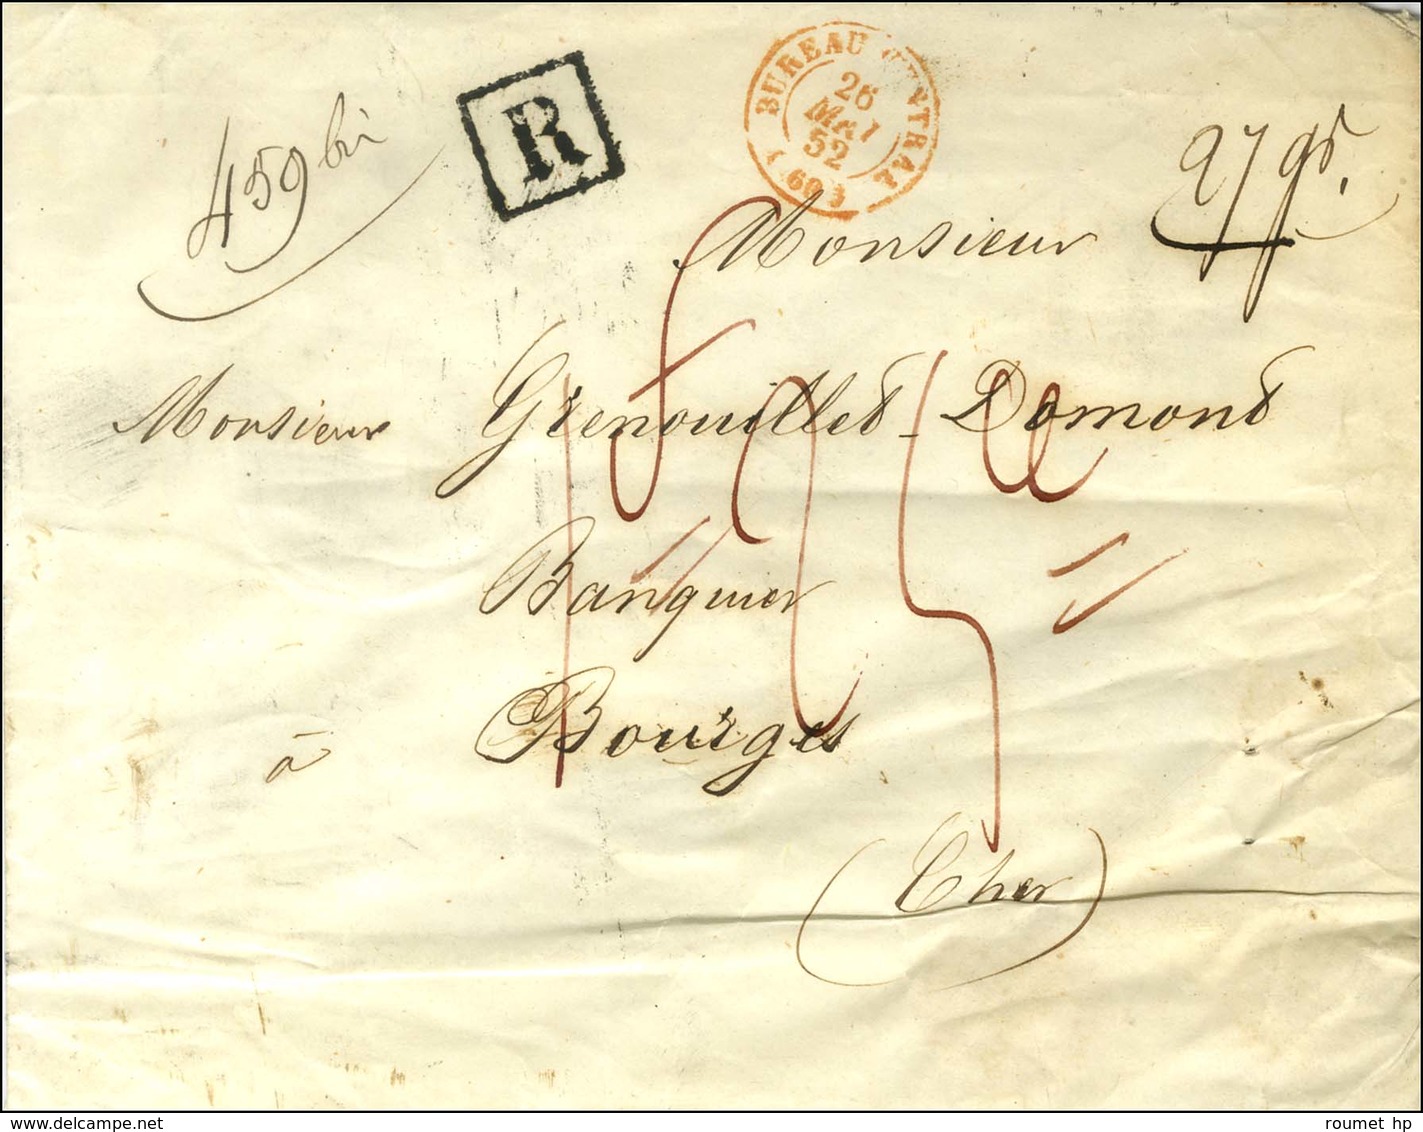 459 bis
R
BUREAU CENTRAL
26
MAI
52
(60)
27 gr.
Monsieur
Monsieur Grenouillet-Domond
Banquier
à Bourges
(Cher)
www.delcampe.net
roumet hp